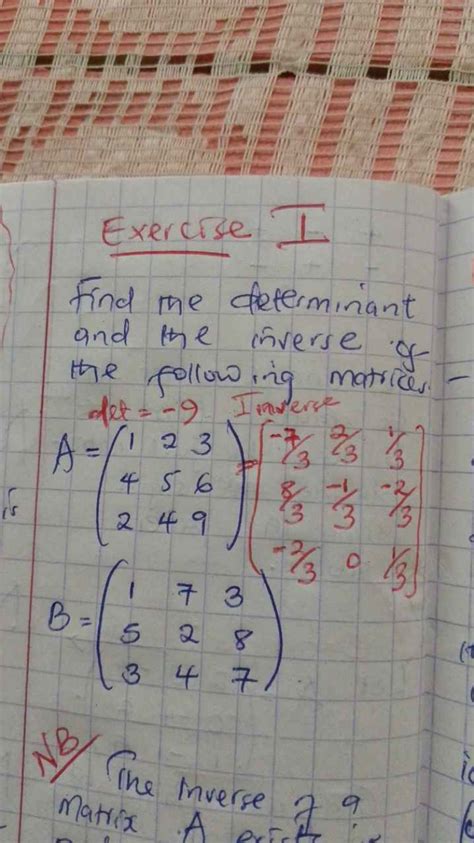 Exercise I
Find the determinant
and the inverse of
the following matrices. -
det = -9 Inverse
A = (1 2 3 = [-7/3 2/3 1/3
4 5 6 8/3 -1/3 -2/3
2 4 9) -2/3 0 1/3]
is
B = (1 7 3
5 2 8
3 4 7)
NB/ The inverse of a
matrix A